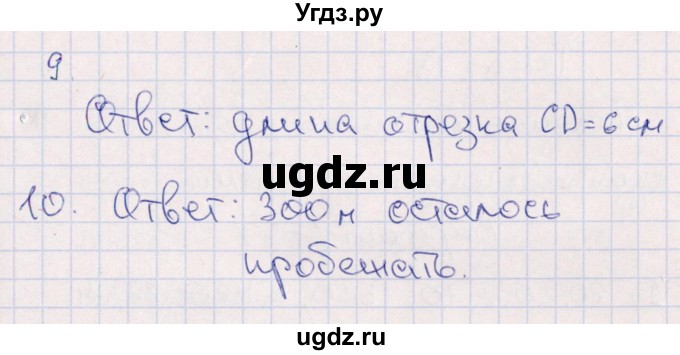 Угдз.ру
9
Ответ: длина отрезка CD = 6 см
ugdz.ru
10. Ответ: 300 м осталось
пробежать.
ugdz.ru